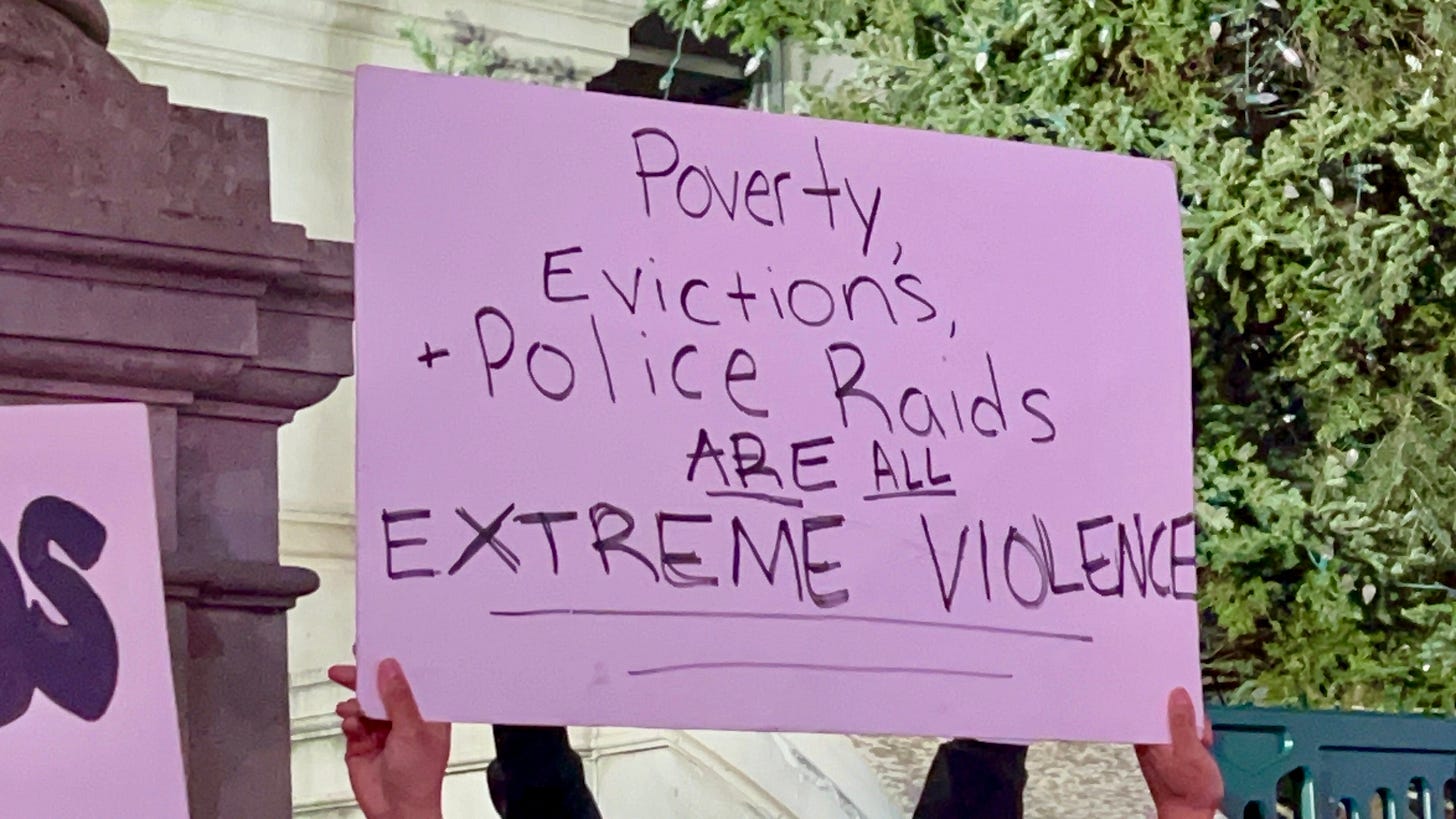 Poverty,
Eviction's,
+ Police Raids
ARE ALL
EXTREME VIOLENCE